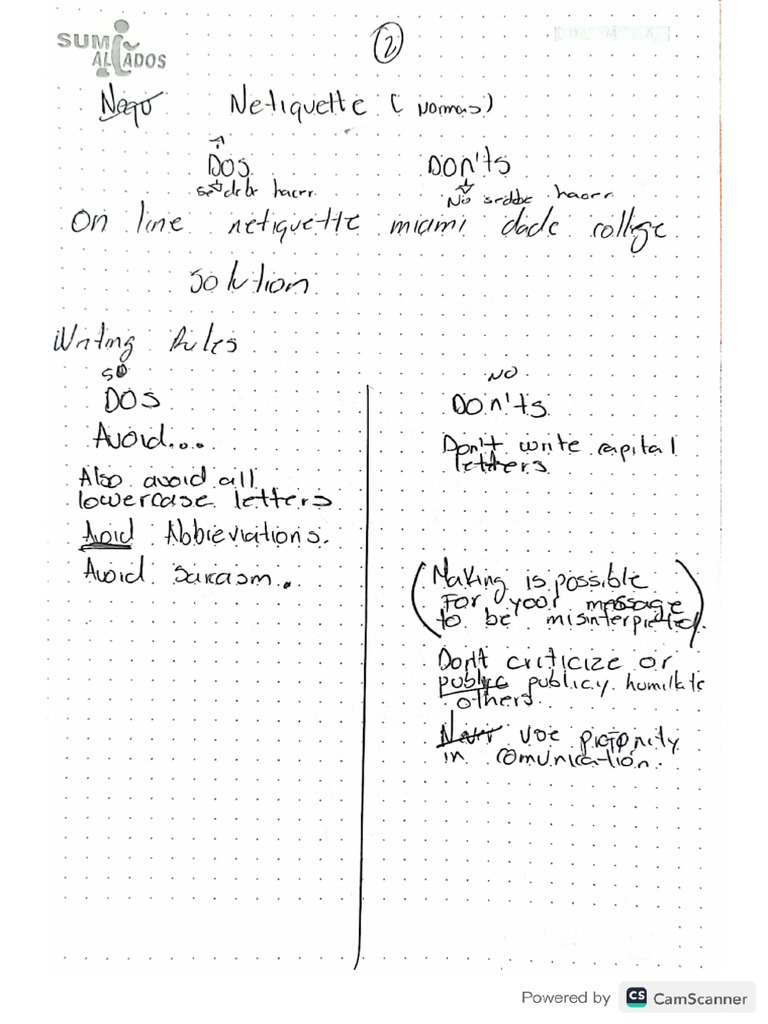 SUM
ALIADOS
2
Nego Netiquette (Normas)
DOS Don'ts
se debe hacer. No se debe hacer
On line netiquette miami dade college
solution
Writing Rules
NO
DOS
Don'ts
Avoid...
Don't write capital
letters
Also avoid all
lowercase letters
Avoid Abbreviations.
Avoid sarcasm.
(Making is possible
For your message
to be misinterpreted.)
Don't criticize or
public publicy humilate
others.
Never use profanity
in comunication.
Powered by CS CamScanner